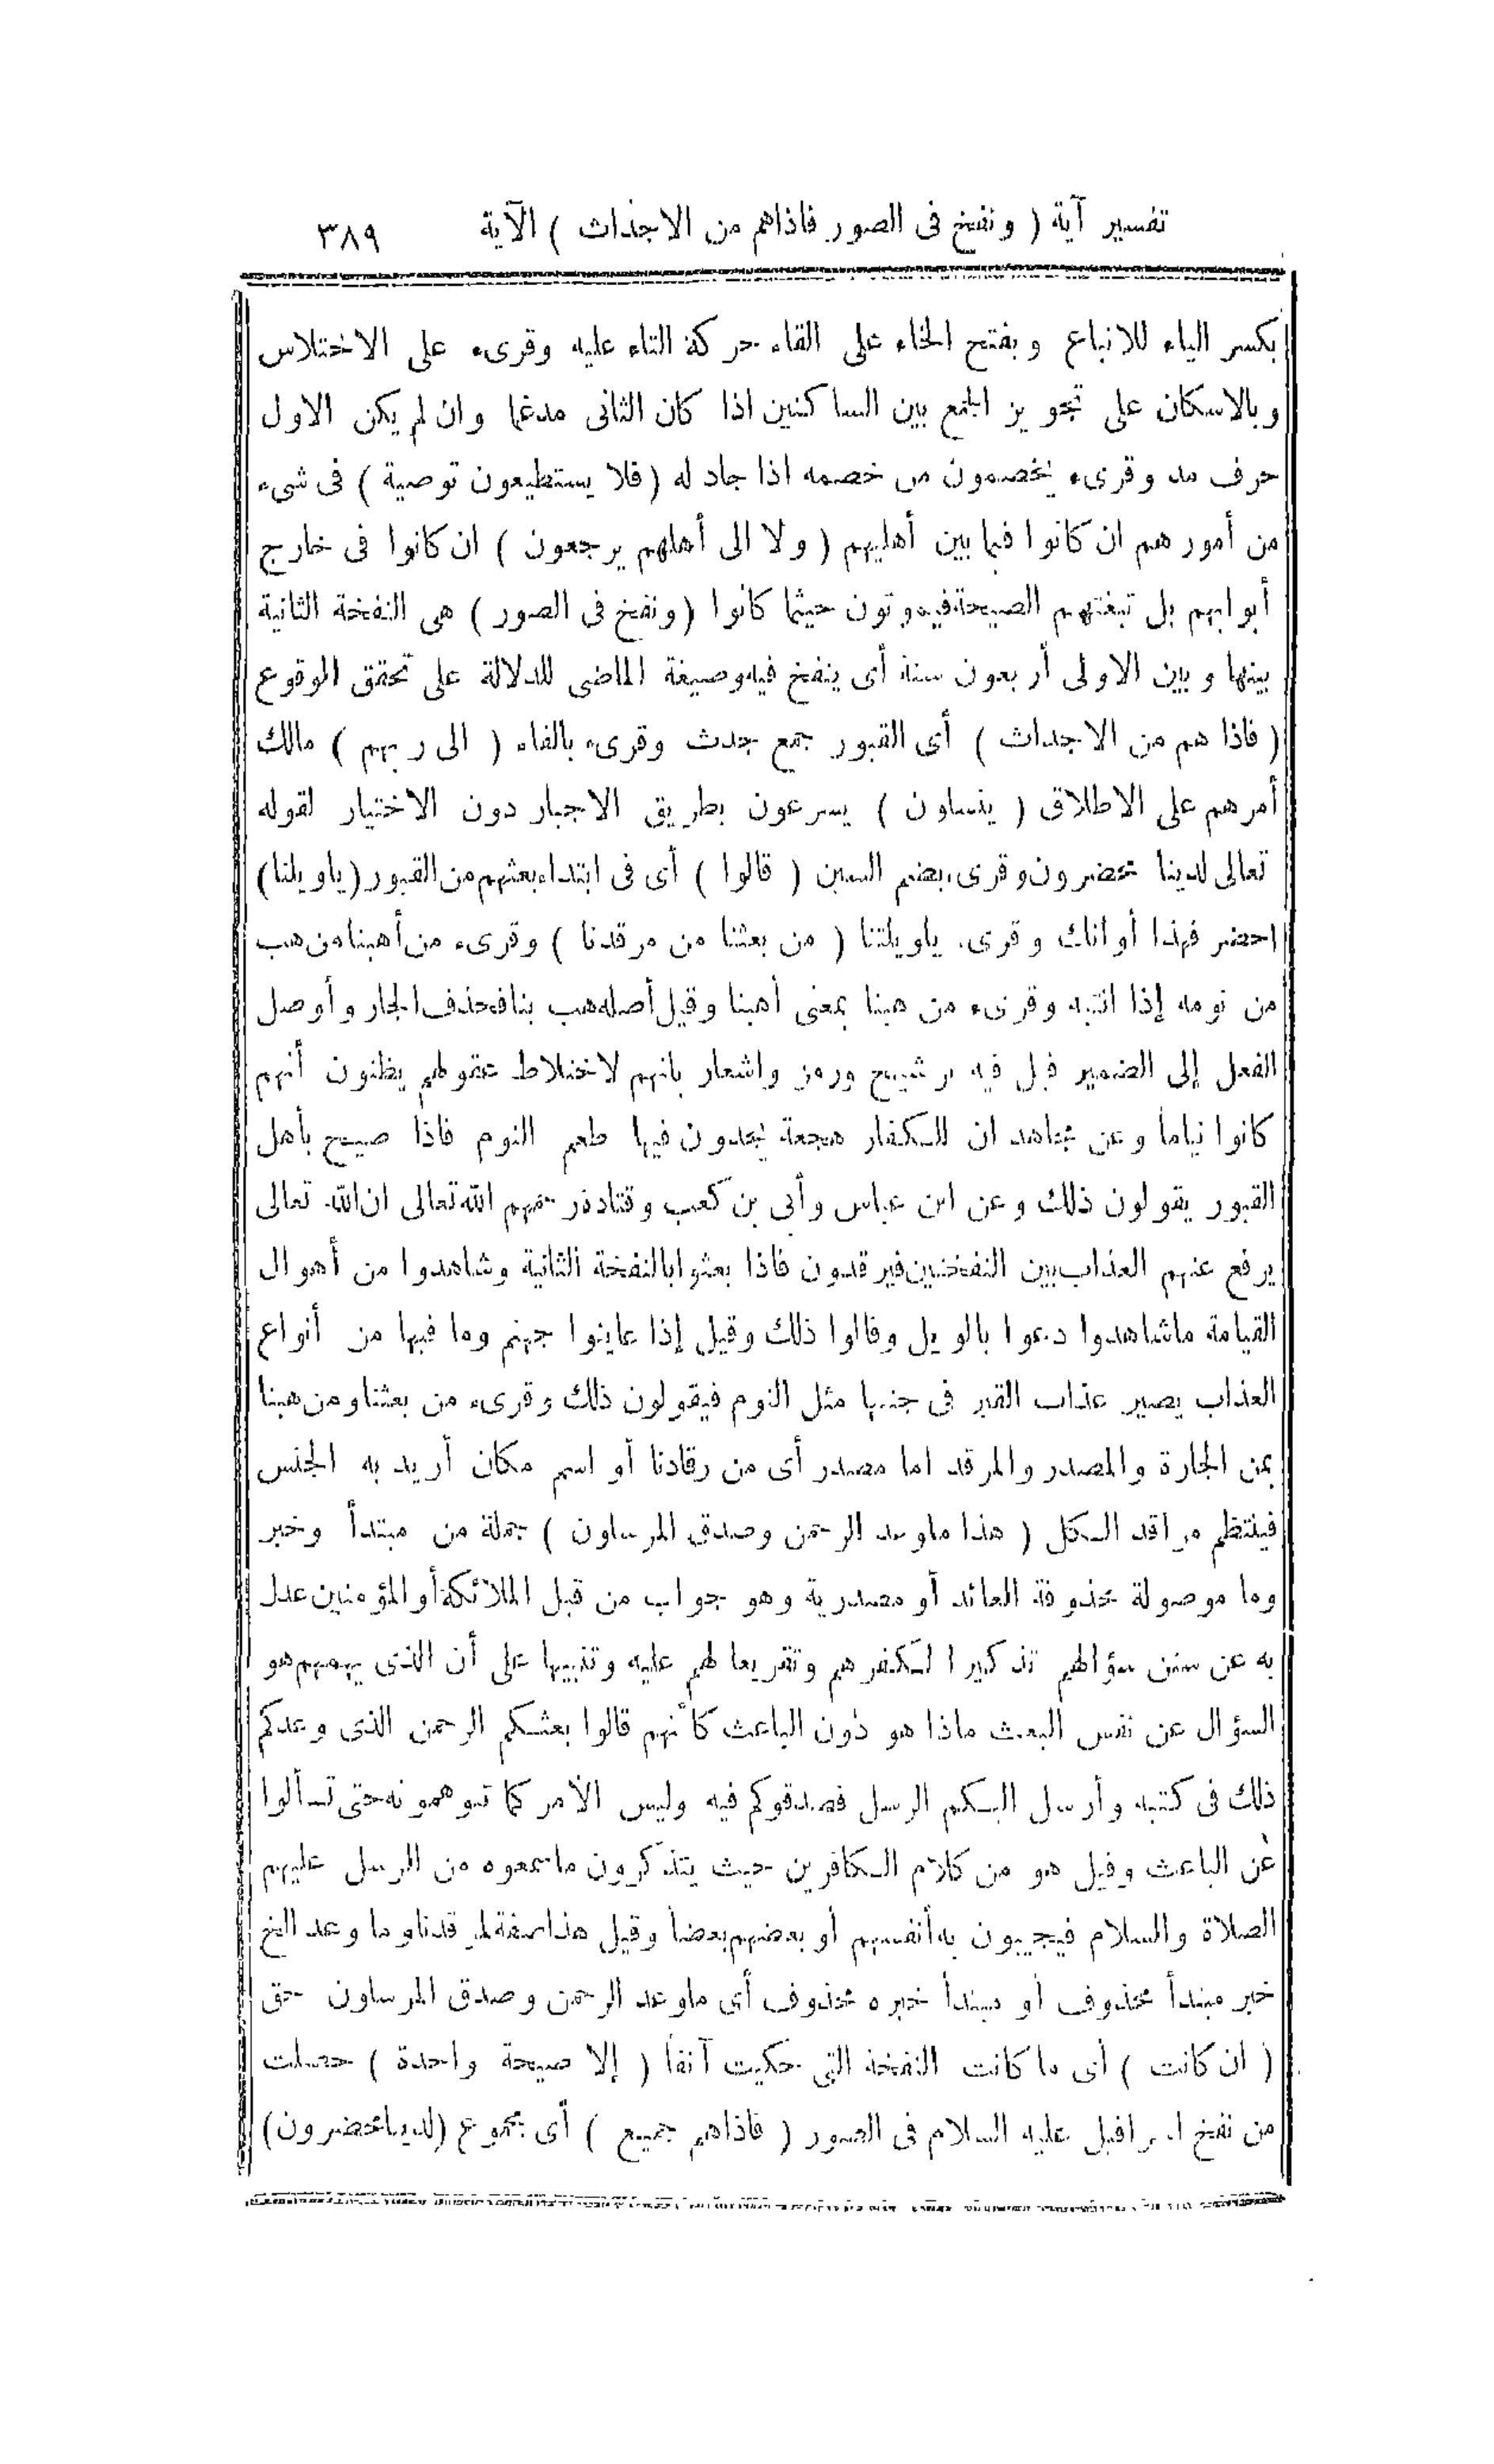 تفسير آية ( ونفخ فى الصور فاذاهم من الاجداث ) الآية ٣٨٩
بكسر الياء للاتباع وبفتح الخاء على القاء حركة التاء عليه وقرىء على الاختلاس
وبالاسكان على تجويز الجمع بين الساكنين اذا كان الثانى مدغما وان لم يكن الاول
حرف مد وقرىء يخصمون من خصمه اذا جادله (فلا يستطيعون توصية ) فى شىء
من أمورهم ان كانوا فيما بين أهليهم ( ولا الى أهلهم يرجعون ) ان كانوا فى خارج
أبوابهم بل تبغتهم الصيحة فيموتون حيثما كانوا ( ونفخ فى الصور ) هى النفخة الثانية
بينها وبين الاولى أربعون سنة أى ينفخ فيه وصيغة الماضى للدلالة على تحقق الوقوع
( فاذا هم من الاجداث ) أى القبور جمع جدث وقرىء بالفاء ( الى ربهم ) مالك
أمرهم على الاطلاق ( ينسلون ) يسرعون بطريق الاجبار دون الاختيار لقوله
تعالى لدينا محضرون وقرىء بضم السين ( قالوا ) أى فى ابتداء بعثهم من القبور (ياويلنا)
احضر فهذا أوانك وقرىء ياويلتنا ( من بعثنا من مرقدنا ) وقرىء من أهبنا من هب
من نومه إذا انتبه وقرىء من هبنا بمعنى أهبنا وقيل أصله هب بنا فحذف الجار وأوصل
الفعل إلى الضمير قيل فيه ترشيح ورمز واشعار بانهم لاختلاط عقولهم يظنون أنهم
كانوا نياما وعن مجاهد ان للكفار هجعة يجدون فيها طعم النوم فاذا صيح بأهل
القبور يقولون ذلك وعن ابن عباس وأبى بن كعب وقتادة رحمهم الله تعالى ان الله تعالى
يرفع عنهم العذاب بين النفختين فيرقدون فاذا بعثوا بالنفخة الثانية وشاهدوا من أهوال
القيامة ماشاهدوا دعوا بالويل وقالوا ذلك وقيل إذا عاينوا جهنم وما فيها من أنواع
العذاب يصير عذاب القبر فى جنبها مثل النوم فيقولون ذلك وقرىء من بعثنا ومن هبنا
بمن الجارة والمصدر والمرقد اما مصدر أى من رقادنا أو اسم مكان أريد به الجنس
فينتظم مراقد الكل ( هذا ماوعد الرحمن وصدق المرسلون ) جملة من مبتدأ وخبر
وما موصولة محذوفة العائد أو مصدرية وهو جواب من قبل الملائكة أو المؤمنين عدل
به عن سنن سؤالهم تذكيرا لكفرهم وتقريعا لهم عليه وتنبيها على أن الذى يهمهم هو
السؤال عن نفس البعث ماذا هو دون الباعث كأنهم قالوا بعثكم الرحمن الذى وعدكم
ذلك فى كتبه وأرسل اليكم الرسل فصدقوكم فيه وليس الأمر كما تتوهمونه حتى تسألوا
عن الباعث وقيل هو من كلام الكافرين حيث يتذكرون ماسمعوه من الرسل عليهم
الصلاة والسلام فيجيبون به أنفسهم أو بعضهم بعضا وقيل هذا صفة لمرقدنا وما وعد الخ
خبر مبتدأ محذوف أو مبتدأ خبره محذوف أى ماوعد الرحمن وصدق المرسلون حق
( ان كانت ) أى ما كانت النفخة التى حكيت آنفا ( إلا صيحة واحدة ) حصلت
من نفخ اسرافيل عليه السلام فى الصور ( فاذاهم جميع ) أى مجموع (لدينا محضرون)